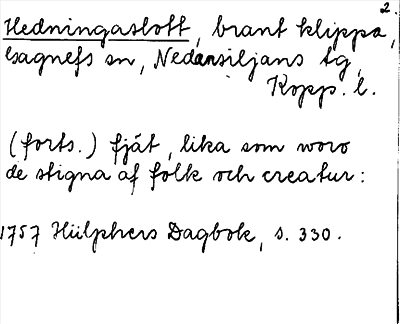 2.
Hedningaslott, brant klippa,
Gagnefs sn, Nedansiljans tg,
Kopp. l.
(forts.) fjät, lika som woro
de stigna af folk och creatur:
1757 Hülphers Dagbok, s. 330.